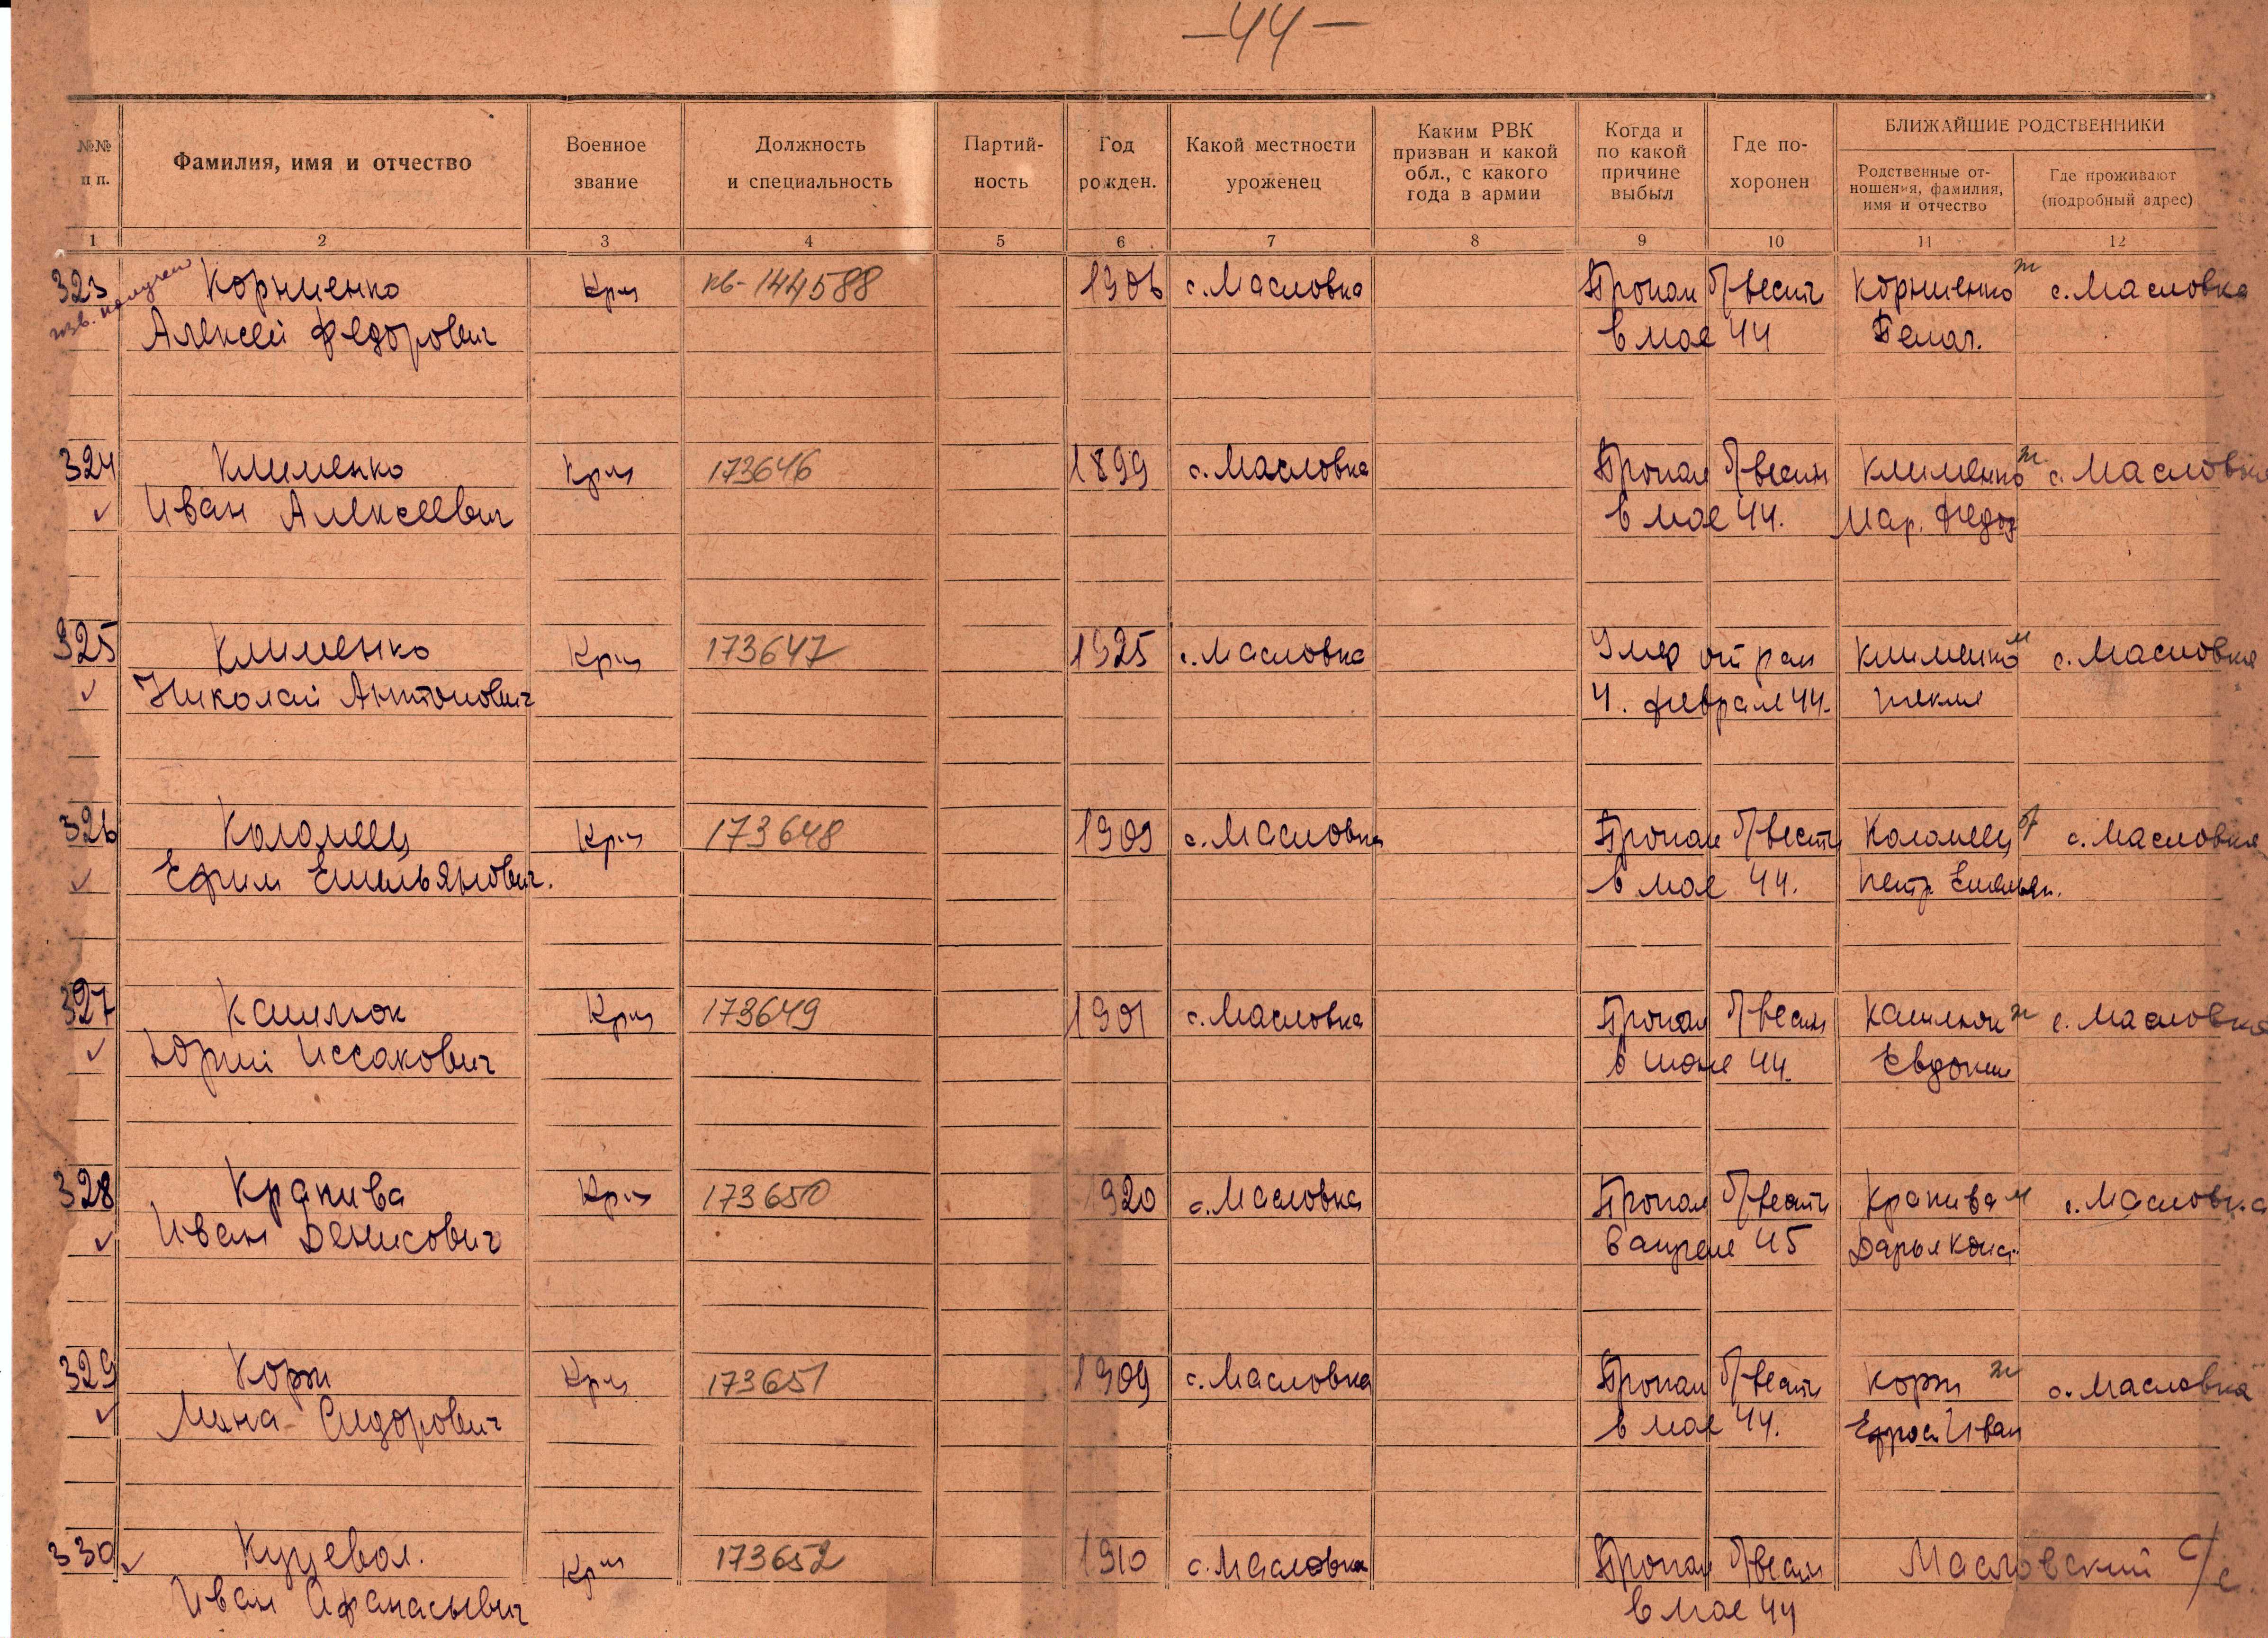 —44—
№№ п п.
Фамилия, имя и отчество
Военное звание
Должность и специальность
Партий-
ность
Год рожден.
Какой местности уроженец
Каким РВК
призван и какой
обл., с какого
года в армии
Когда и
по какой
причине
выбыл
Где по-
хоронен
БЛИЖАЙШИЕ РОДСТВЕННИКИ
Родственные от-
ношения, фамилия,
имя и отчество
Где проживают
(подробный адрес)
1 2 3 4 5 6 7 8 9 10 11 12
323 Корниенко Крц кв-144588 1906 с. Масловка Пропал б/вести Корниенко ж с. Масловка
изв. получен Алексей Федорович в мае 44
324 Клименко Крц 173646 1899 с. Масловка Пропал б/вести Клименко ж с. Масловка
Иван Алексеевич в мае 44. Мар. Федор
325 Клименко Крц 173647 1925 с. Масловка Умер от ран Клименко м с. Масловка
Николай Антонович 4. феврале 44. Текля
326 Коломеец Крц 173648 1909 с. Масловка Пропал б/вести Коломеец б с. Масловка
Ефим Емельянович. в мае 44. Петр Емельян.
327 Кашлюк Крц 173649 1901 с. Масловка Пропал б/вести Кашлюк ж с. Масловка
Юрий Иссакович в июне 44. Евдокия
328 Крапива Крц 173650 1920 с. Масловка Пропал б/вести Крапива м с. Масловка
Иван Денисович в апреле 45 Дарья Конст.
329 Корж Крц 173651 1909 с. Масловка Пропал б/вести Корж ж с. Масловка
Мина Сидорович в мае 44. Ефрос Иван
330 Куцевол. Крц 173652 1910 с. Масловка Пропал б/вести Масловский с/с.
Иван Афанасьевич в мае 44